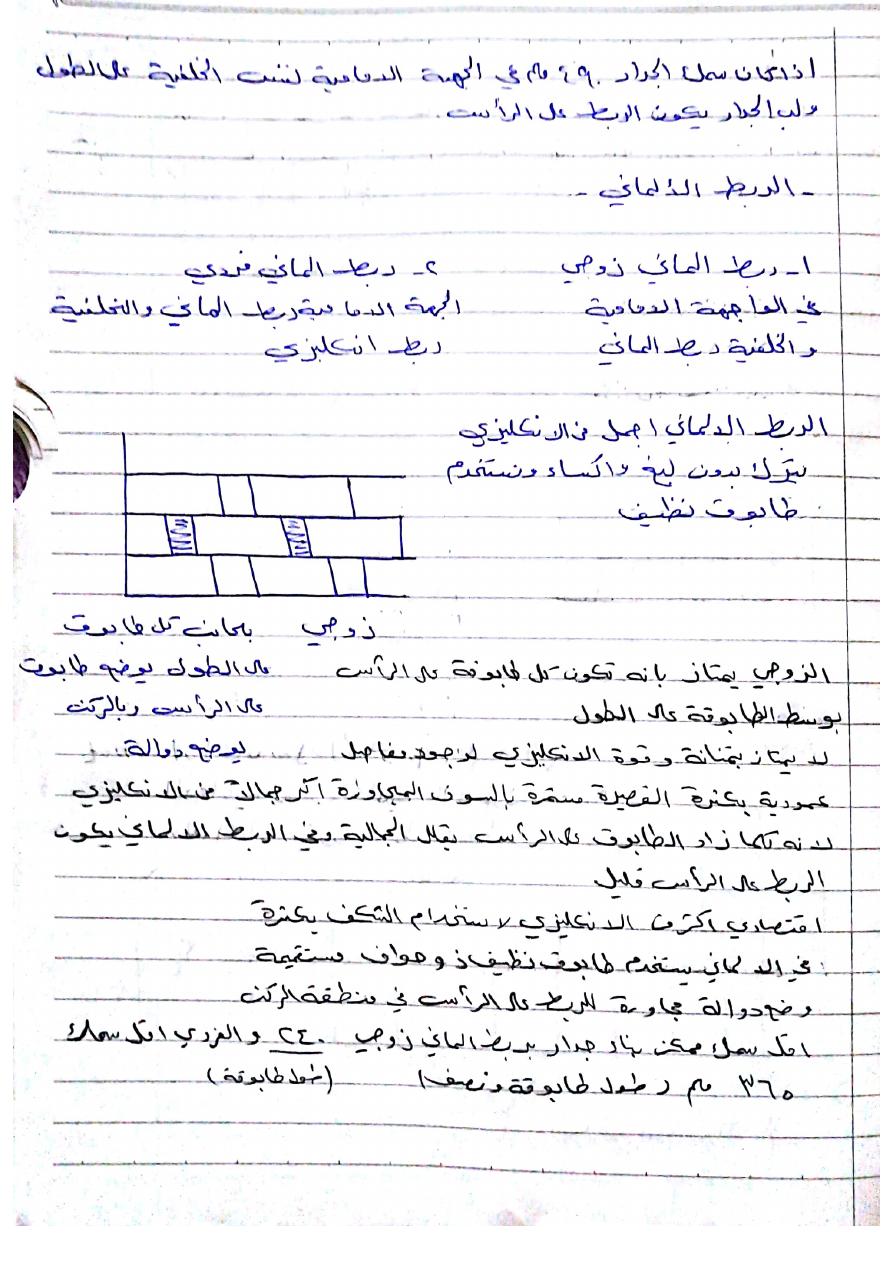 اذا كان سمك الجدار ٤٩٠ ملم في الجهة الامامية نفس الخلفية على الطول
ولب الجدار يكون الربط على الرأس.
- الربط الالماني -
١- ربط الماني زوجي
في الواجهة الامامية
والخلفية ربط الماني
٢- ربط الماني فردي
الجهة الامامية ربط الماني والخلفية
ربط انكليزي
الربط الالماني اجمل من الانكليزي
يترك بدون لبخ واكساء ونستخدم
طابوق نظيف
زوجي
بجانب كل طابوق
على الطول يوضع طابوق
على الرأس وبالركن
يوضع دوالة.
الزوجي يمتاز بانه تكون كل طابوقة على الرأس
بوسط الطابوقة على الطول
لا يمتاز بمتانة وقوة الانكليزي لوجود مفاصل
عمودية بكثرة القصيرة مستمرة بالسوف المجاورة اكثر جمالا من الانكليزي
لانه كلما زاد الطابوق على الرأس يقلل الجمالية وفي الربط الالماني يكون
الربط على الرأس قليل
اقتصادي اكثر من الانكليزي لاستخدام الكف بكثرة
في الالماني يستخدم طابوق نظيف ذو حواف مستقيمة
وضع دوالة مجاورة للربط على الرأس في منطقة الركن
اقل سمك ممكن بناء جدار بربط الماني زوجي ٢٤٠ والفردي اقل سمك
٣٦٥ ملم (طول طابوقة ونصف)
(طول طابوقة)